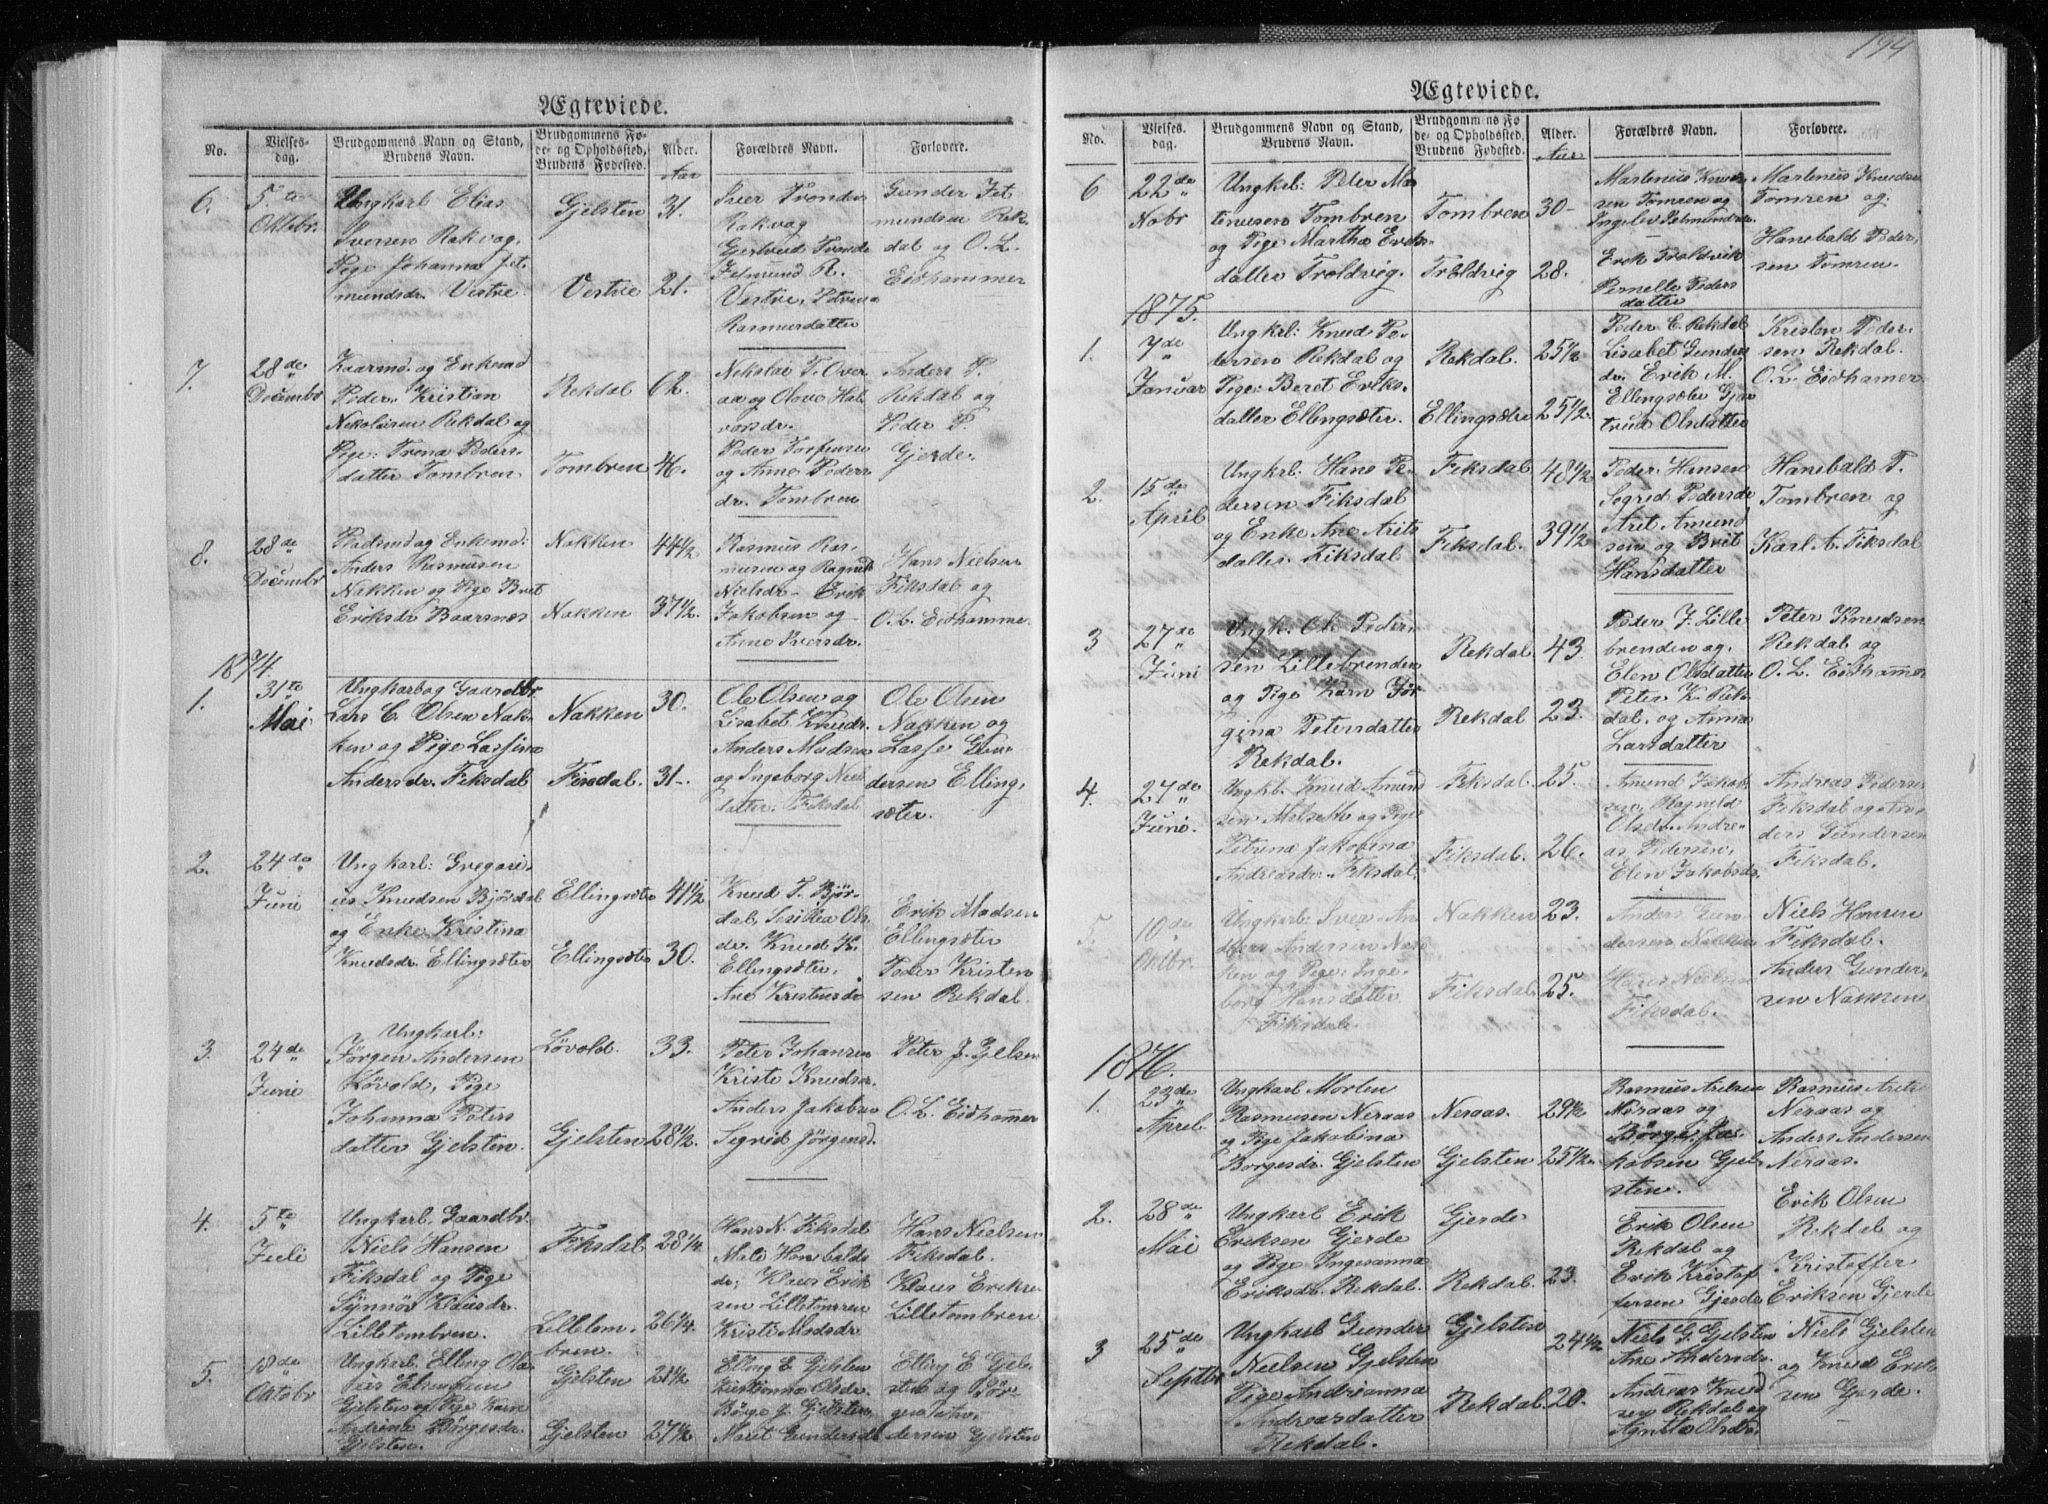 Ægteviede.
No.
Vielses-
dag.
Brudgommens Navn og Stand,
Brudens Navn.
Brudgommens Fø-
de- og Opholdssted,
Brudens Fødested.
Alder.
Aar
Forældres Navn.
Forlovere.
6.
5te
Oktobr.
Ungkarl Elias
Iversen Rakvag,
Pige Johanna Jet
mundsdr. Vestre
Gjelsten
Vestre
31.
21.
Iver Tronden
Rakvag
Gjertrud Tronds
Jetmund R.
Vestre, Petrina
Rasmusdatter
Gunder Jet
mundsen Rek
dal og O. L.
Eidhammer
7.
28de
Decembr
Kaarmd. og Enkemd
Peder Kristian
Nikolaisen Rekdal og
Pige: Trena Peders-
datter Tombren
Rekdal
Tombren
62.
46.
Nikolai T. Over
aa og Olave Hal
vorsdr.
Peder Torfinsen
og Anne Peders
dr. Tombren
Anders P.
Rekdal og
Peder P.
Gjerde.
8.
28de
Decembr
Pladsmd og Enkemd:
Anders Rasmusen
Nakken og Pige Brit
Eriksdr Baarsnes
Nakken
Nakken
44½.
37½.
Rasmus Ras-
musen og Ragnild
Nielsdr - Erik
Jakobsen og
Anne Iversdr.
Hans Nielsen
Fiksdal og
O. L. Eidhamme
1874.
1.
31te
Mai
Ungkarl og Gaardbr
Lars C. Olsen Nak-
ken og Pige Lassina
Andersdr. Fiksdal
Nakken
Fiksdal.
30.
31-
Ole Olsen og
Lisabet Knudsr.
Anders Madsen
og Ingeborg Niels
datter. Fiksdal
Ole Olsen
Nakken og
Lasse Gun
dersen Elling,
sæter.
2.
24de
Juni
Ungkarl: Gregori-
us Knudsen Bjørdal
og Enke Kristina
Knudsdr. Ellingsæter
Ellingsæte
Ellingsæte
41½
30.
Knud T. Bjør-
dal, Sesilia Ols
dr. Knud K.
Ellingsæter,
Ane Kristensdr
Erik Madsen
Ellingsæter
Peder Kristen
sen Rekdal.
3.
24de
Juni
Ungkarl:
Jørgen Andersen
Løvold, Pige
Johanna Peters
datter Gjelsten.
Løvold.
Gjelsten
33.
28½.
Peter Johansen
Kristi Knudsr.
Anders Jakobsen
Sigrid Jørgensd.
Peter J. Gjelsen
O. L. Eidhammer
4.
5te
Juli
Ungkarl. Gaardbr.
Niels Hansen
Fiksdal og Pige
Synnøv Klausdr.
Lilletombren.
Fiksdal
Lilletom.
bren.
28¼
26¼.
Hans N. Fiksdal
Mali Hanibalds
dr; Klaus Erik
sen Lilletomren
Kristi Madsdr
Hans Nielsen
Fiksdal.
Klaus Erikse
Lilletombren
5.
18de
Oktobr
Ungkarl. Elling Ola
Gjelsten og Pige Karn
Andrine Børgesdr.
Gjelsten.
Gjelsten
Gjelsten
21½
27½
Elling E. Gjelsten
Kristianna Olsdr.
Børge J. Gjelsten
Marit Gundersdr
Elling E. Gjel-
sten og Bør-
ge
dersen Gjelsten
194
Ægteviede.
No.
Vielses-
dag.
Brudgommens Navn og Stand,
Brudens Navn.
Brudgommens Fø
de- og Opholdssted,
Brudens Fødested.
Alder.
Aar
Forældres Navn.
Forlovere.
6
22de
Nobr
Ungkrl: Peter Mar
tinusen Tombren
og Pige Martha Eriks-
datter Troldvig.
Tombren
Troldvig
30-
28.
Martenius Knud
sen Tomren og
Ingelev Jetmundsdr.
Erik Troldvik
Pernelle Peders
datter
Martenius Knudsen
Tomren og
Hanebald Peder,
sen Tomren.
1875.
1.
7de
Januar
Ungkrl: Knud Pe-
dersen Rekdal og
Pige: Beret Eriks-
datter Ellingsæter.
Rekdal.
Ellingsæter
25½
25½.
Peder E. Rekdal
Lisabet Gunders
dr. Erik M.
Ellingsæter Gjær
trud Olsdatter
Kristen Peder-
sen Rekdal.
O. L. Eidhamer
2.
15de
April
Ungkrl. Hans Pe-
dersen Fiksdal
og Enke Ane Arits
datter. Fiksdal
Fiksdal
Fiksdal.
48½
39½
Peder Hansen
Segrid Pedersdr
Arit Amund
sen og Brit
Hansdatter
Hanebald P.
Tombren og
Karl A. Fiksdal
3
27de
Juni
Ungk. Ole Peder-
sen Lillebrenden
og Pige Karn Jør
gina Petersdatter
Rekdal.
Rekdal
Rekdal
43.
23.
Peder J. Lille
brenden og
Elen Olsdatter
Peter K. Rek
dal. og Anna
Larsdatter
Peter Knudsen
Rekdal og
O. L. Eidhamer
4.
27de
Juni.
Ungkl. Knud Amund
sen Melsetbo og Pige
Petrina Jakobina
Andreasdr. Fiksdal.
Fiksdal.
Fiksdal.
25.
26.
Amund Jakob-
sen, Ragnild
Olsdr. Andre-
as Pedersen,
Elen Jakobsdr.
Andreas Peders
Fiksdal og An
ders Gundersen
Fiksdal.
5.
10de
Oktbr.
Ungkarl: Iver An
ders Andersen Nak
ken og Pige: Inge-
borg Hansdatter
Fiksdal
Nakken
Fiksdal
23.
25.
Anders Gun-
dersen Nakken
Hans Nielsen
Fiksdal.
Niels Hansen
Fiksdal.
Anders Gunder-
sen Nakken
1876.
1.
23de
April
Ungkarl Morten
Rasmusen Neraas
og Pige Jakobina
Borgesdr. Gjelsten
Neraas.
Gjelsten
29½
25½
Rasmus Aretsen
Neraas og
Børge Ja-
kobsen Gjel
sten.
Rasmus Arets
Neraas og
Anders Andersen
Neraas.
2.
28de
Mai
Ungkarl Erik
Eriksen Gjerde
og Pige Ingeanna
Eriksdr. Rekdal.
Gjerde
Rekdal.
23.
Erik Olsen
Rekdal og
Erik Kristof
fersen Gjerde
Erik Olsen
Rekdal og
Kristoffer
Eriksen Gjerde
3
25de
Septbr
Ungkarl Gunder
Nielsen Gjelsten
Pige Andrianna
Andreasdatter
Rekdal.
Gjelsten
Rekdal.
24½
20.
Niels G. Gjelsten
Ane Andersdr.
Andreas Knud
sen Rekdal og
Agnette Olsdr.
Niels Gjelsten
og Knud Erik
sen Gjerde.